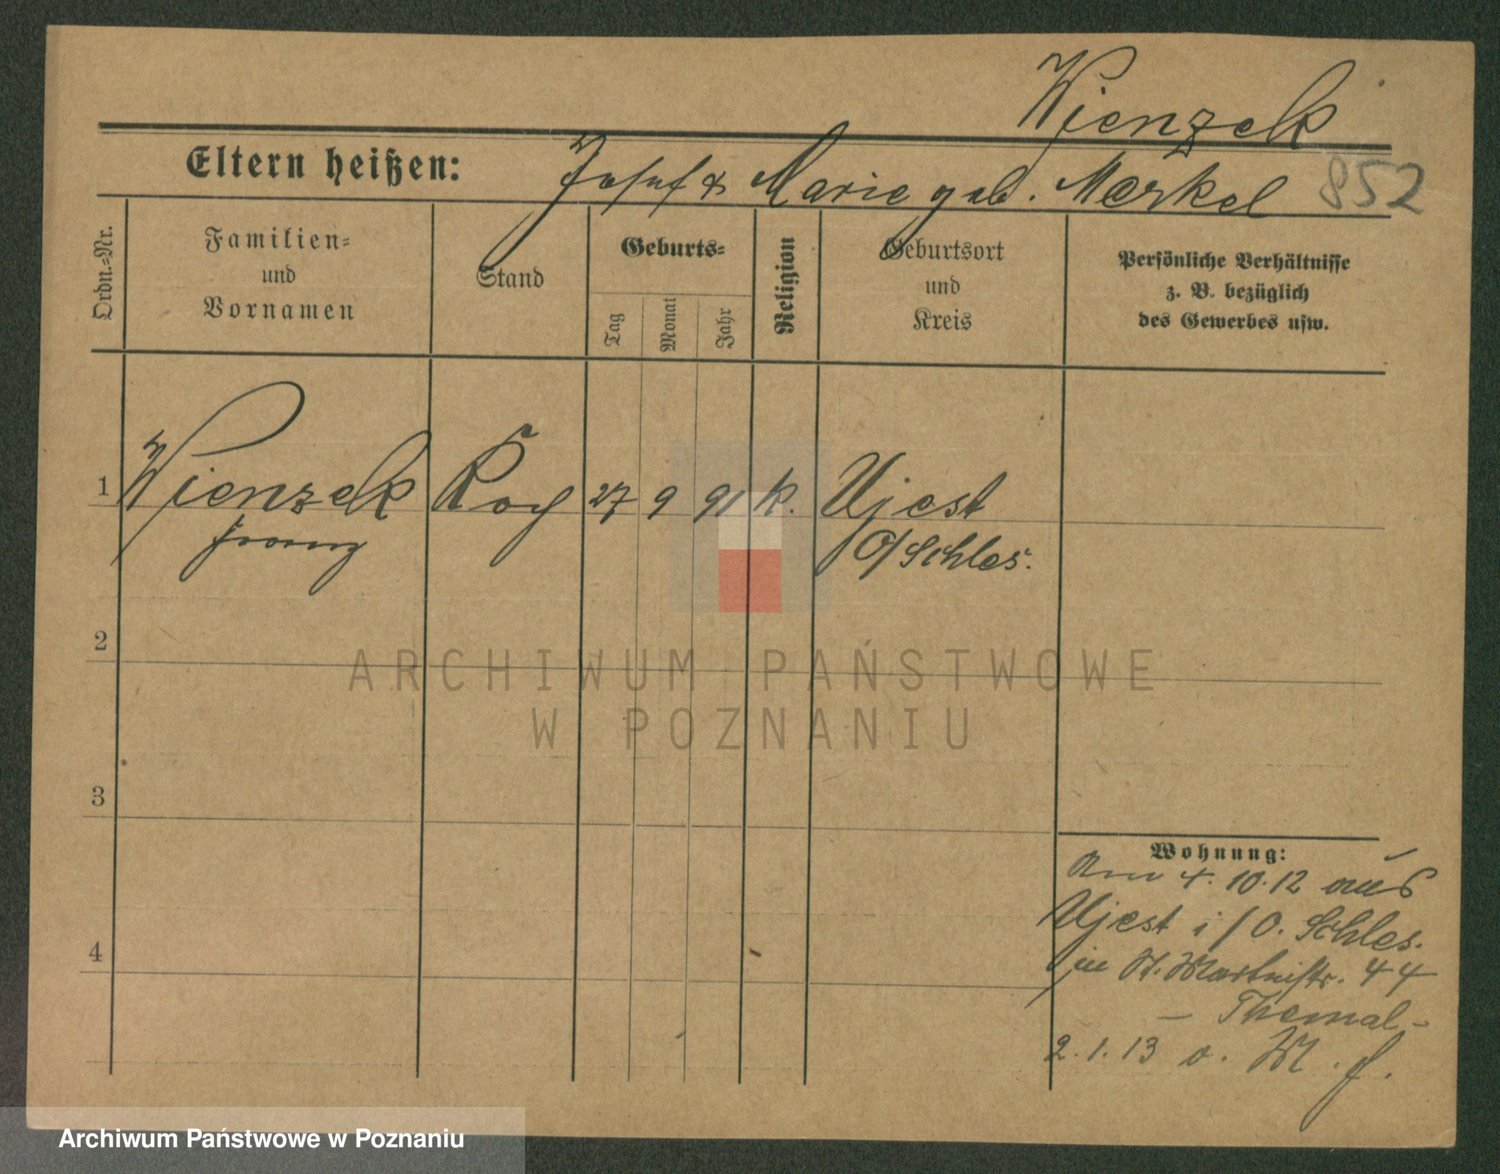 Wienzek
Eltern heißen: Josef & Marie geb. Merkel 852
Ordn.-Nr.
Familien-
und
Vornamen
Stand
Geburts-
Tag
Monat
Jahr
Religion
Geburtsort
und
Kreis
Persönliche Verhältnisse
z. B. bezüglich
des Gewerbes usw.
1 Wienzek Koch 27 9 91 k. Ujest
Franz O/Schles.
2
ARCHIWUM PAŃSTWOWE
W POZNANIU
3
Wohnung:
Am 4.10.12 aus
Ujest i/O. Schles.
in St. Martinstr. 44
4
– Themal –
2.1.13 o. M. f.
Archiwum Państwowe w Poznaniu